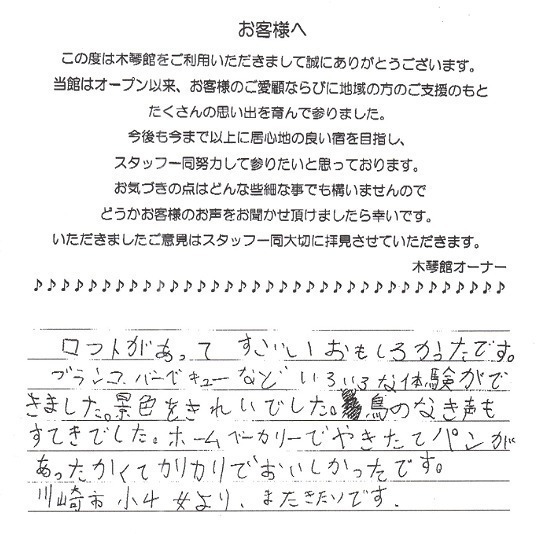 お客様へ
この度は木琴館をご利用いただきまして誠にありがとうございます。
当館はオープン以来、お客様のご愛顧ならびに地域の方のご支援のもと
たくさんの思い出を育んで参りました。
今後も今まで以上に居心地の良い宿を目指し、
スタッフ一同努力して参りたいと思っております。
お気づきの点はどんな些細な事でも構いませんので
どうかお客様のお声をお聞かせ頂けましたら幸いです。
いただきましたご意見はスタッフ一同大切に拝見させていただきます。
木琴館オーナー
♪♪♪♪♪♪♪♪♪♪♪♪♪♪♪♪♪♪♪♪♪♪♪♪♪♪♪♪♪♪♪♪♪♪♪
ロフトがあって すごいしおもしろかったです。
ブランコ、バーベキューなど いろいろな体験がで
きました。景色をきれいでした。鳥のなき声も
すてきでした。ホームベーカリーでやきたてパンが
あったかくてカリカリでおいしかったです。
川崎市 小4 女より、またきたいです.